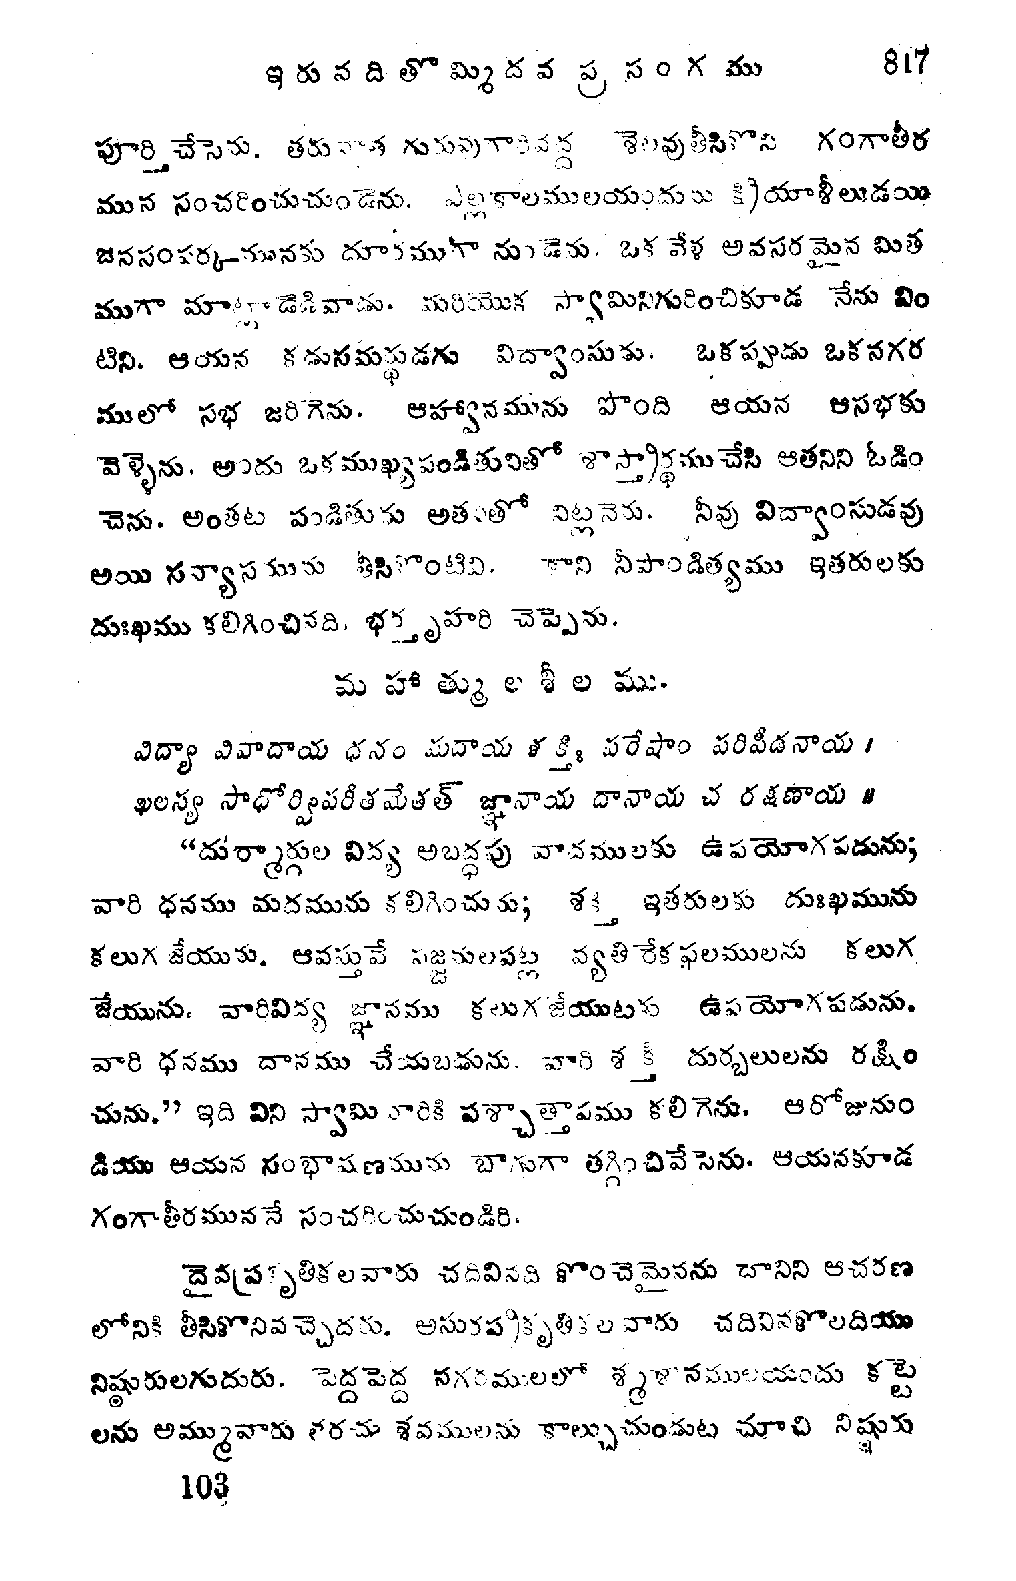 ఇరునదితొమ్మిదవ ప్రసంగము 817
పూర్తిచేసెను. తరువాత గురువుగారివద్ద శెలవుతీసికొని గంగాతీర
మున సంచరించుచుండెను. ఎల్లకాలములయందును క్రియాశీలుడయి
జనసంపర్కమునకు దూరముగా నుండెను. ఒక వేళ అవసరమైన మిత
ముగా మాట్లాడెడివాడు. మరియొక స్వామినిగురించికూడ నేను విం
టిని. ఆయన కడుసమర్థుడగు విద్వాంసుడు. ఒకప్పుడు ఒకనగర
ములో సభ జరిగెను. ఆహ్వానమును పొంది ఆయన ఆసభకు
వెళ్ళెను. అందు ఒకముఖ్యపండితునితో శాస్త్రార్థముచేసి ఆతనిని ఓడిం
చెను. అంతట పండితుడు అతనితో నిట్లనెను. నీవు విద్వాంసుడవు
అయి సన్యాసమును తీసికొంటివి. కాని నీపాండిత్యము ఇతరులకు
దుఃఖము కలిగించినది. భర్తృహరి చెప్పెను.
మహాత్ముల శీలము.
విద్యా వివాదాయ ధనం మదాయ శక్తిః పరేషాం పరిపీడనాయ ।
ఖలస్య సాధోర్విపరీతమేతత్ జ్ఞానాయ దానాయ చ రక్షణాయ ॥
“దుర్మార్గుల విద్య అబద్ధపు వాదములకు ఉపయోగపడును;
వారి ధనము మదమును కలిగించును; శక్తి ఇతరులకు దుఃఖమును
కలుగ జేయును. ఆవస్తువే సజ్జనులపట్ల వ్యతిరేకఫలములను కలుగ
జేయును. వారివిద్య జ్ఞానము కలుగజేయుటకు ఉపయోగపడును.
వారి ధనము దానము చేయబడును. వారి శక్తి దుర్బలులను రక్షిం
చును.” ఇది విని స్వామి వారికి పశ్చాత్తాపము కలిగెను. ఆరోజునుం
డియు ఆయన సంభాషణమును బాగుగా తగ్గించివేసెను. ఆయనకూడ
గంగాతీరముననే సంచరించుచుండిరి.
దైవప్రకృతికలవారు చదివినది కొంచెమైనను దానిని ఆచరణ
లోనికి తీసికొనివచ్చెదరు. అసురప్రకృతికలవారు చదివినకొలదియు
నిష్ఠురులగుదురు. పెద్దపెద్ద నగరములలో శ్మశానములయందు కట్టె
లను అమ్మువారు తరచు శవములను కాల్చుచుండుట చూచి నిష్ఠురు
103